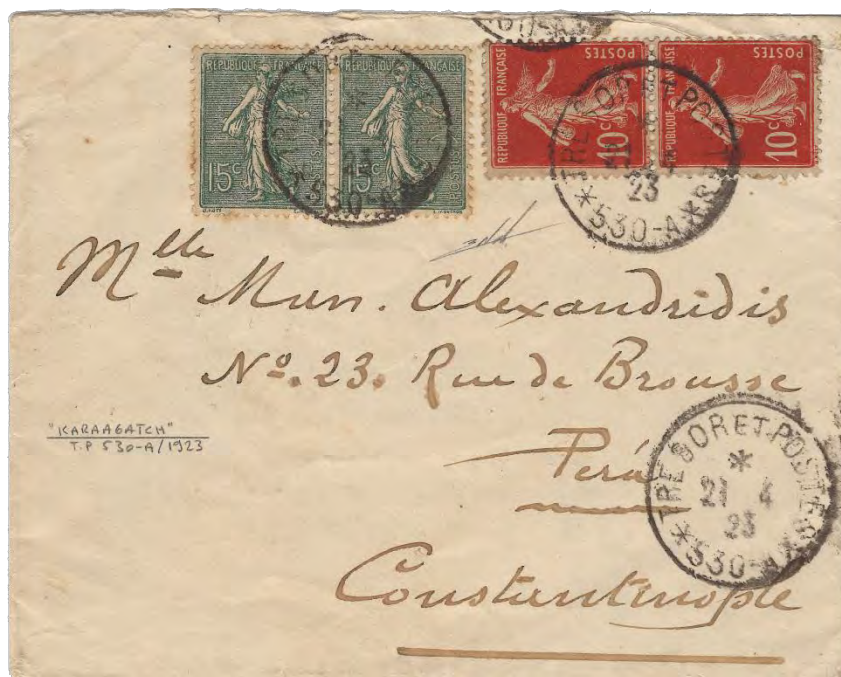 RÉPUBLIQUE FRANÇAISE
15c
RÉPUBLIQUE FRANÇAISE
15c
POSTES
RÉPUBLIQUE FRANÇAISE
POSTES
10c
RÉPUBLIQUE FRANÇAISE
POSTES
10c
23
*530-A*
TRESOR ET POSTES
23
*530-A*
Mlle Mun. Alexandridis
No. 23. Rue de Brousse
Péra
Constantinople
"KARAAGATCH"
T.P 530-A/1923
TRESOR ET POSTES
*
21 4
23
*530-A*